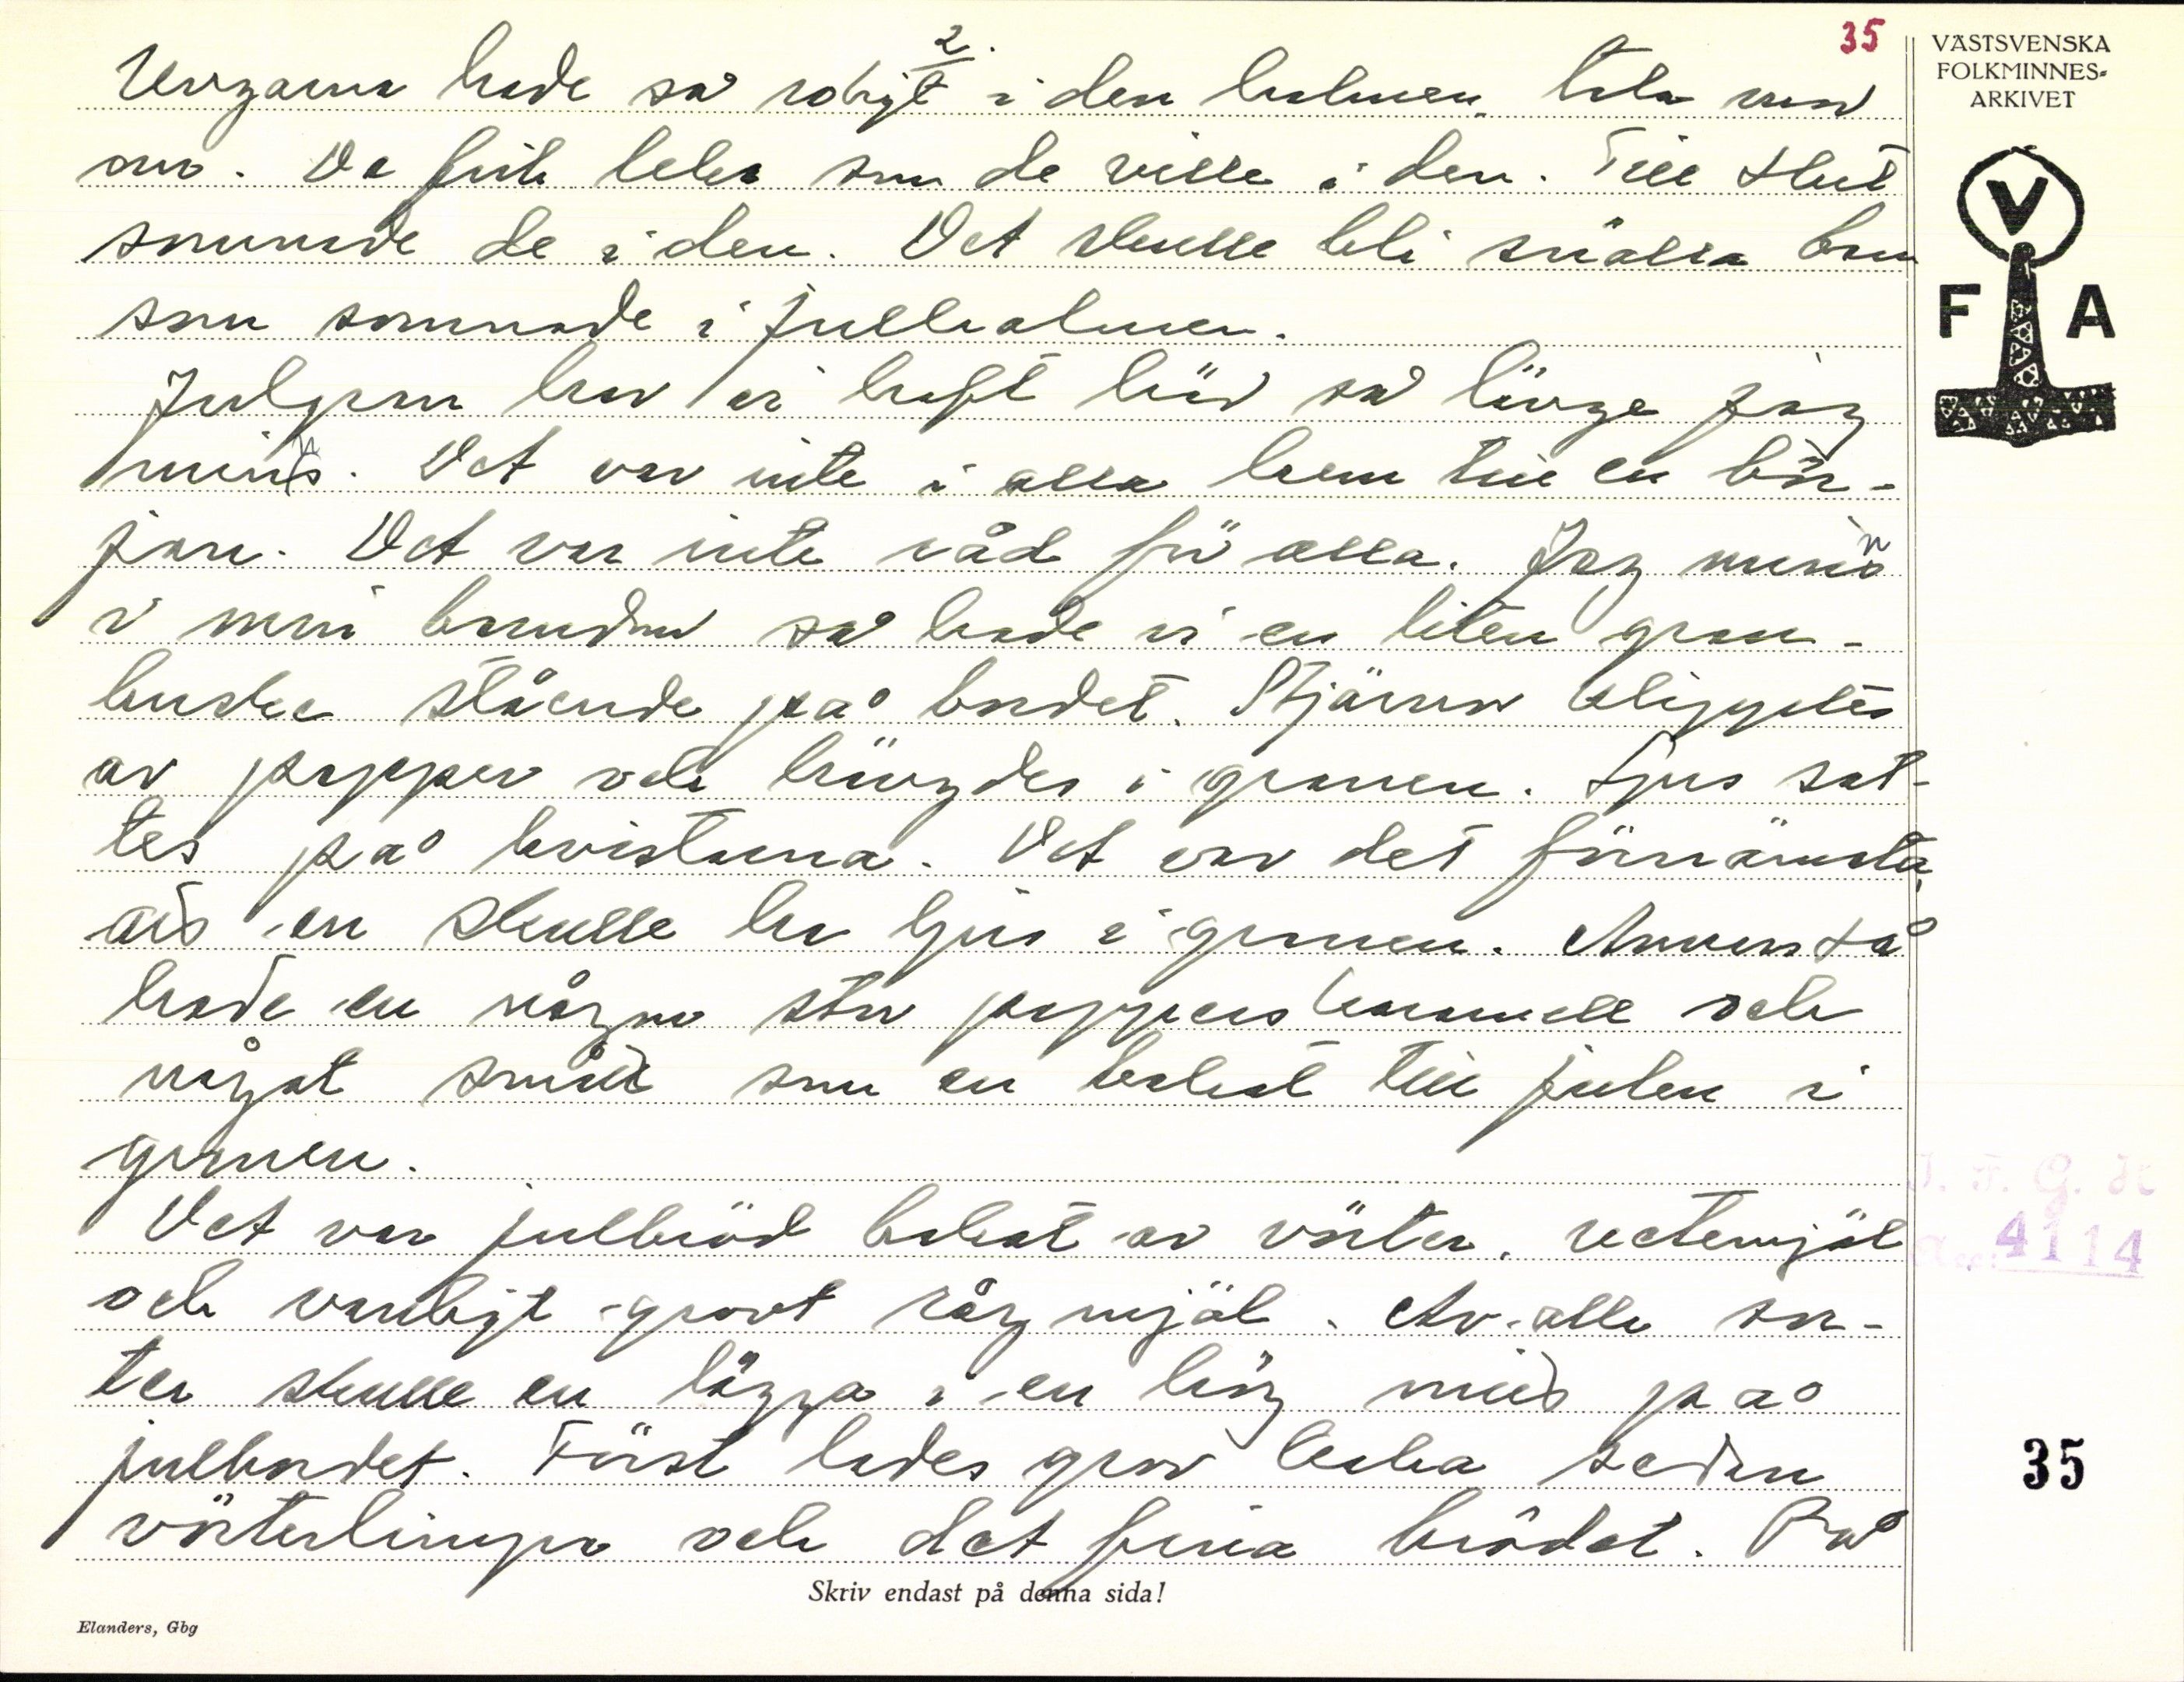 2.
35
VÄSTSVENSKA
FOLKMINNES-
ARKIVET
Ungarna hade så roligt i den halmen tala mor
om. De fick leka som de ville i den. Till slut
somnade de i den. Det skulle bli snälla barn
som somnade i julhalmen.
V
F A
Julgran har vi haft här så länge jag
minns. Det var inte i alla hem till en bör-
jan. Det var inte råd för alla. Jag minns
i min barndom så hade vi en liten gran-
buske stående på bordet. Stjärnor klipptes
av papper och hängdes i granen. Ljus sat-
tes på kvistarna. Det var det förnämsta,
att en skulle ha ljus i granen. Annars så
hade en någon stor papperskaramell och
något smått som en bakat till julen i
granen.
Det var julbröd bakat av vörter, vetemjöl
och vanligt grovt rågmjöl. Av alla sor-
ter skulle en lägga i en hög mitt på
julbordet. Först lades grov kaka sedan
vörterlimpa och det fina brödet. På
J. F. G. H
Acc: 4114
35
Skriv endast på denna sida!
Elanders, Gbg